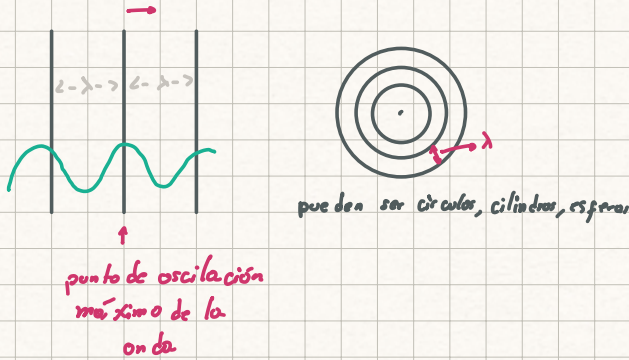 <-λ-> <-λ->
λ
pueden ser círculos, cilindros, esferas
punto de oscilación
máximo de la
onda